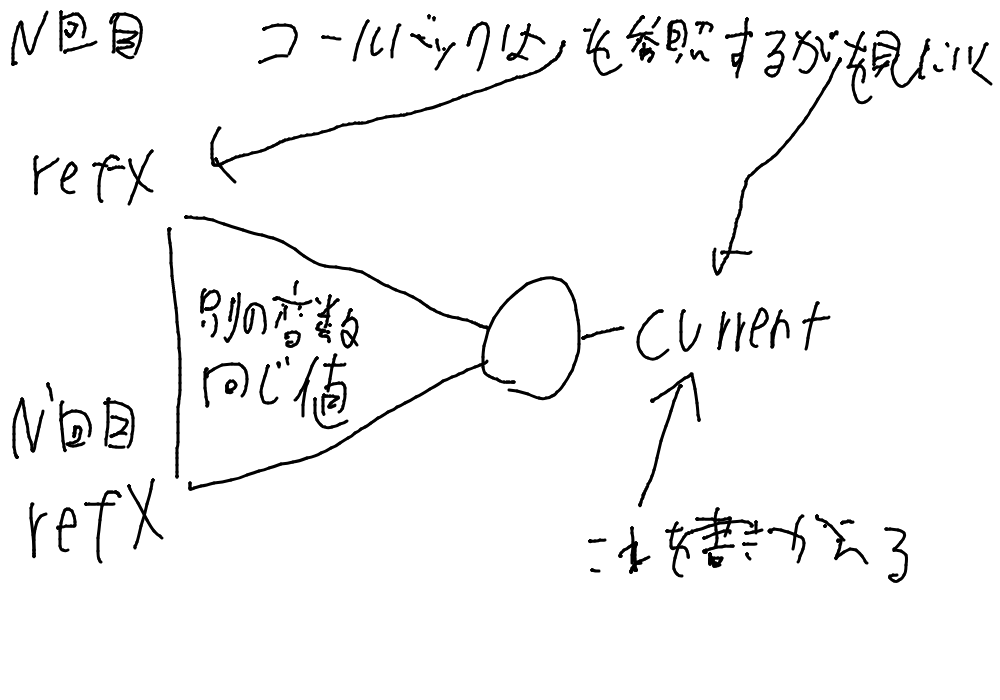 N回目
コールバックは を参照するが を見にいく
refX
別の変数
同じ値
current
N'回目
refX
これを書きかえる